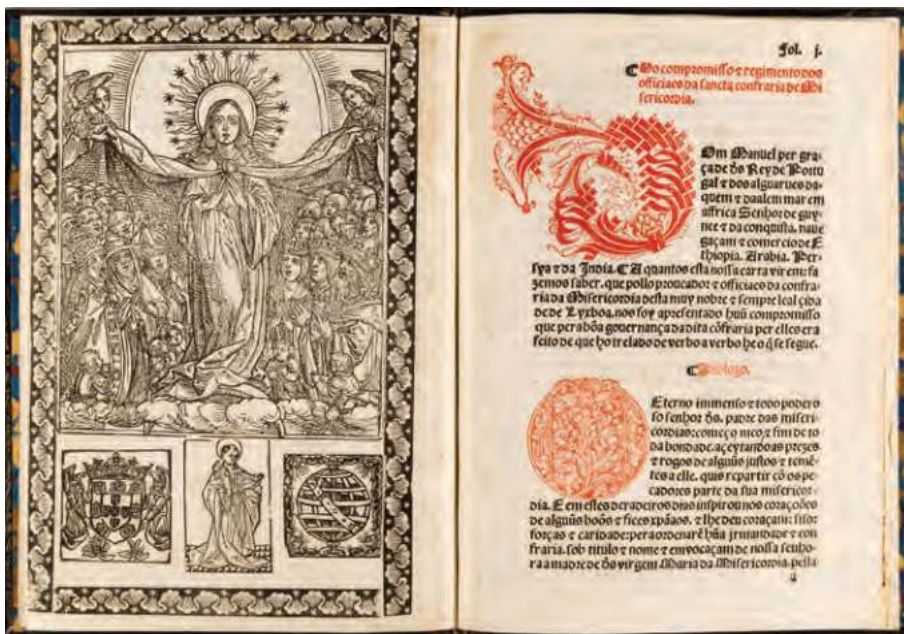 Fol. j.
¶ Do compromisso ⁊ regimento dos
officiaes da sancta confraria de Mi
sericordia.
Dom Manuel per gra-
ça de d̃s Rey de Portu
gal ⁊ dos alguarues da-
quem ⁊ daalem mar em
affrica Senhor de guy-
nee ⁊ da conquista. naue
gaçam ⁊ comercio de E
thiopia. Arabia. Per-
sya ⁊ da India. ¶ A quantos esta nossa carta virem: fa
zemos saber. que pollo prouedor ⁊ officiaes da confra-
ria da Misericordia desta muy nobre ⁊ sempre leal çida
de de Lyxboa. nos foy apresentado huũ compromisso
que pera bõa gouernança da dita cõfraria per elles era
feito de que ho trelado de verbo a verbo he o q̃ se segue.
¶ Prologo.
Eterno immenso ⁊ todo podero
so senhor d̃s. padre das miseri-
cordias: começo nico, ⁊ fim de to
da bondade. açeytando as prezes
⁊ rogos de alguũs justos ⁊ temẽ-
tes a elle. quis repartir cõ os pe-
cadores parte da sua misericor-
dia. E em estes deradeiros dias inspirou nos coraçoões
de alguũs boõs ⁊ fiees xp̃aos. ⁊ lhe deu coraçam: siso:
forças ⁊ caridade: pera ordenarẽ hũa jrmandade ⁊ con
fraria. sob titulo ⁊ nome ⁊ emvocaçam de nossa senho-
ra a madre de d̃s virgem Maria da Misericordia. pella
a